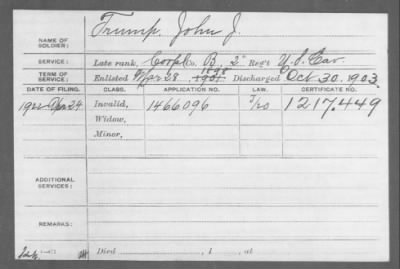 NAME OF SOLDIER: Trump, John J.
SERVICE: Late rank, Corpl Co. B, 2" Reg't U.S. Cav.
1898
TERM OF SERVICE: Enlisted Apr 28, 1901 Discharged Oct 30, 1903
DATE OF FILING. CLASS. APPLICATION NO. LAW. CERTIFICATE NO.
1922 Apr 24 Invalid, 1466096 1217.449
Widow,
Minor,
ADDITIONAL SERVICES:
REMARKS:
Died , 1 , at